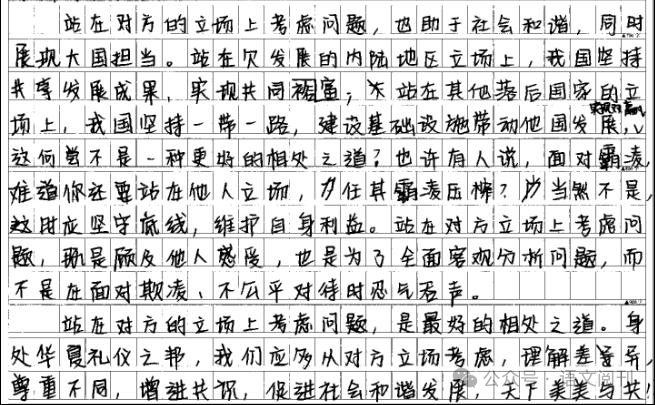 站在对方的立场上考虑问题，也助于社会和谐，同时
展现大国担当。站在欠发展的内陆地区立场上，我国坚持
共享发展成果，实现共同裕富；站在其他落后国家的立
场上，我国坚持一带一路，建设基础设施带动他国发展，实现双赢，
这何尝不是一种更好的相处之道？也许有人说，面对霸凌，
难道你还要站在他人立场，任其霸凌压榨？当然不是，
这时应坚守底线，维护自身利益。站在对方立场上考虑问
题，既是顾及他人感受，也是为了全面客观分析问题，而
不是在面对欺凌、不公平对待时忍气吞声。
站在对方的立场上考虑问题，是最好的相处之道。身
处华夏礼仪之邦，我们应多从对方立场考虑，理解差异，
尊重不同，增进共识，促进社会和谐发展，天下美美与共！
公众号·语文阅刊